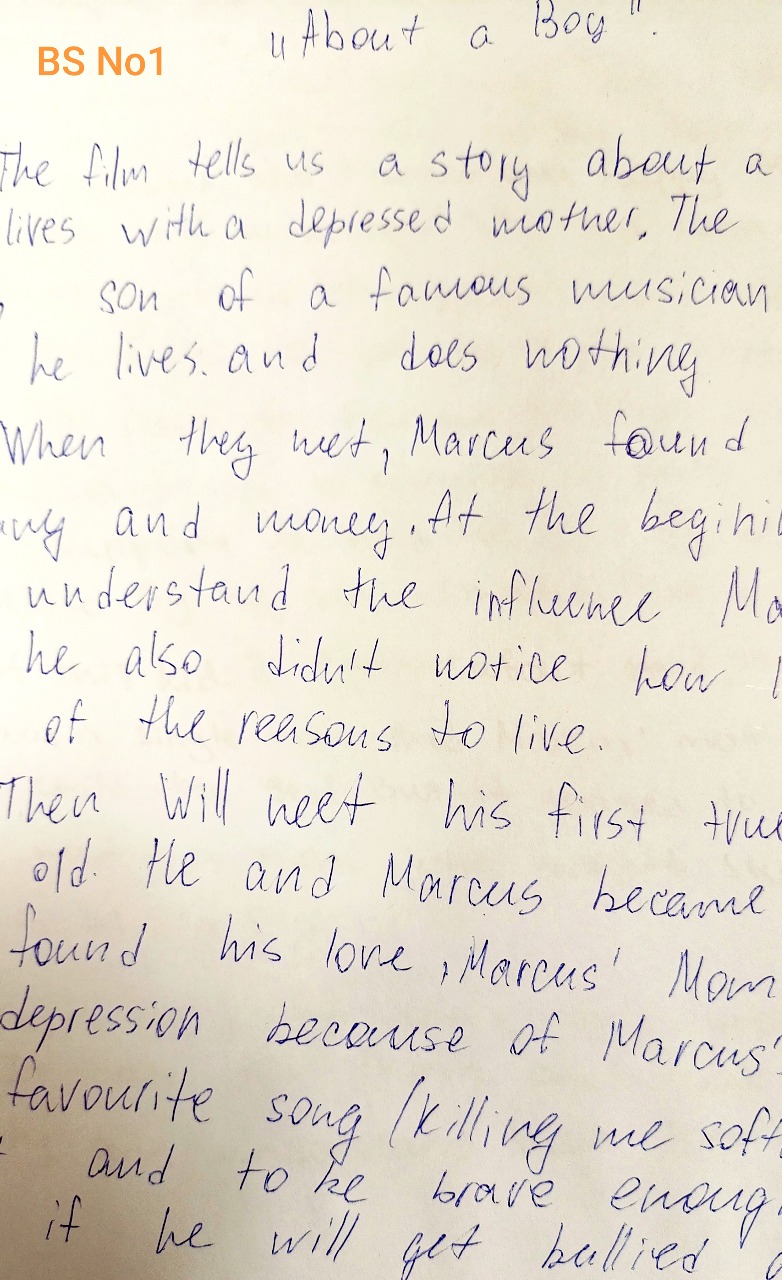 „About a Boy".
BS No1
The film tells us a story about a
lives with a depressed mother. The
son of a famous musician
he lives. and does nothing
When they met, Marcus found
and money. At the begini
understand the influence Ma
he also didn't notice how
of the reasons to live.
Then Will meet his first true
old. He and Marcus became
found his love, Marcus' Mom
depression because of Marcus'
favourite song (Killing me soft
and to be brave enoug
if he will get bullied